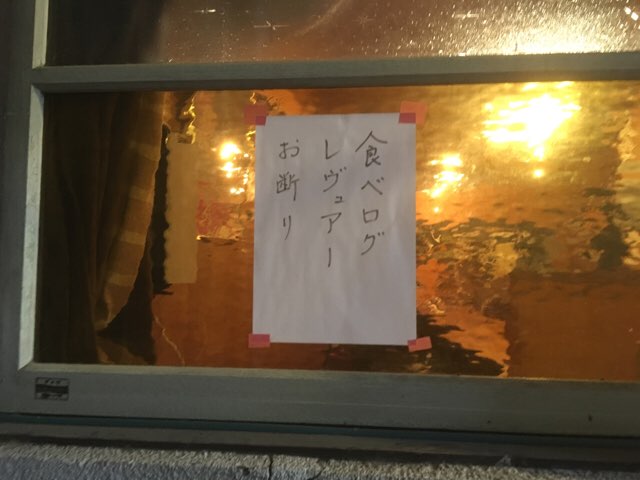 食べログ
レヴュアー
お断り